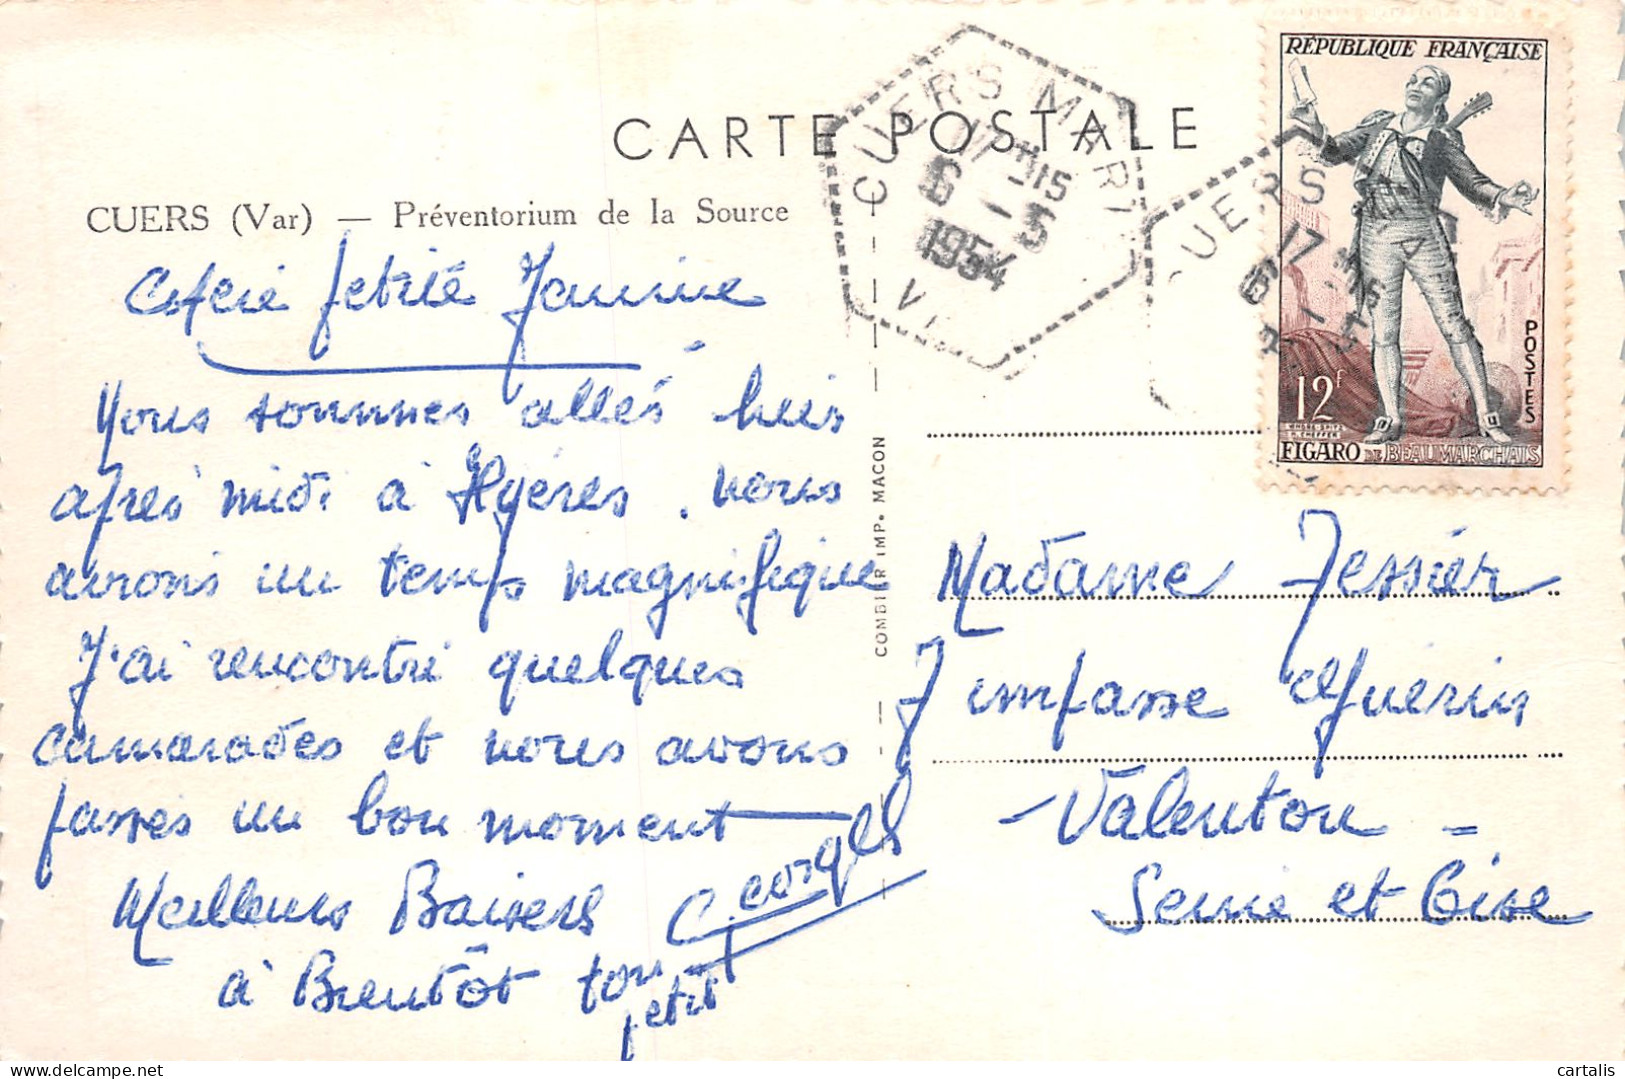 CARTE POSTALE
CUERS (Var) — Préventorium de la Source
Chérie petite Jannine
Nous sommes allés hier
après midi à Hyéres. nous
avons un temps magnifique
J'ai rencontré quelques
camarades et nous avons
passés un bon moment
Meilleurs Baisers
à Bientôt ton petit
Georges
COMBIER IMP. MACON
CUERS
17
6 - 5
1954
UERS
17
6 - 5
RÉPUBLIQUE FRANÇAISE
POSTES
12F
FIGARO DE BEAUMARCHAIS
Madame Tessier
7 impasse Guerin
- Valenton -
Seine et Oise
cartalis